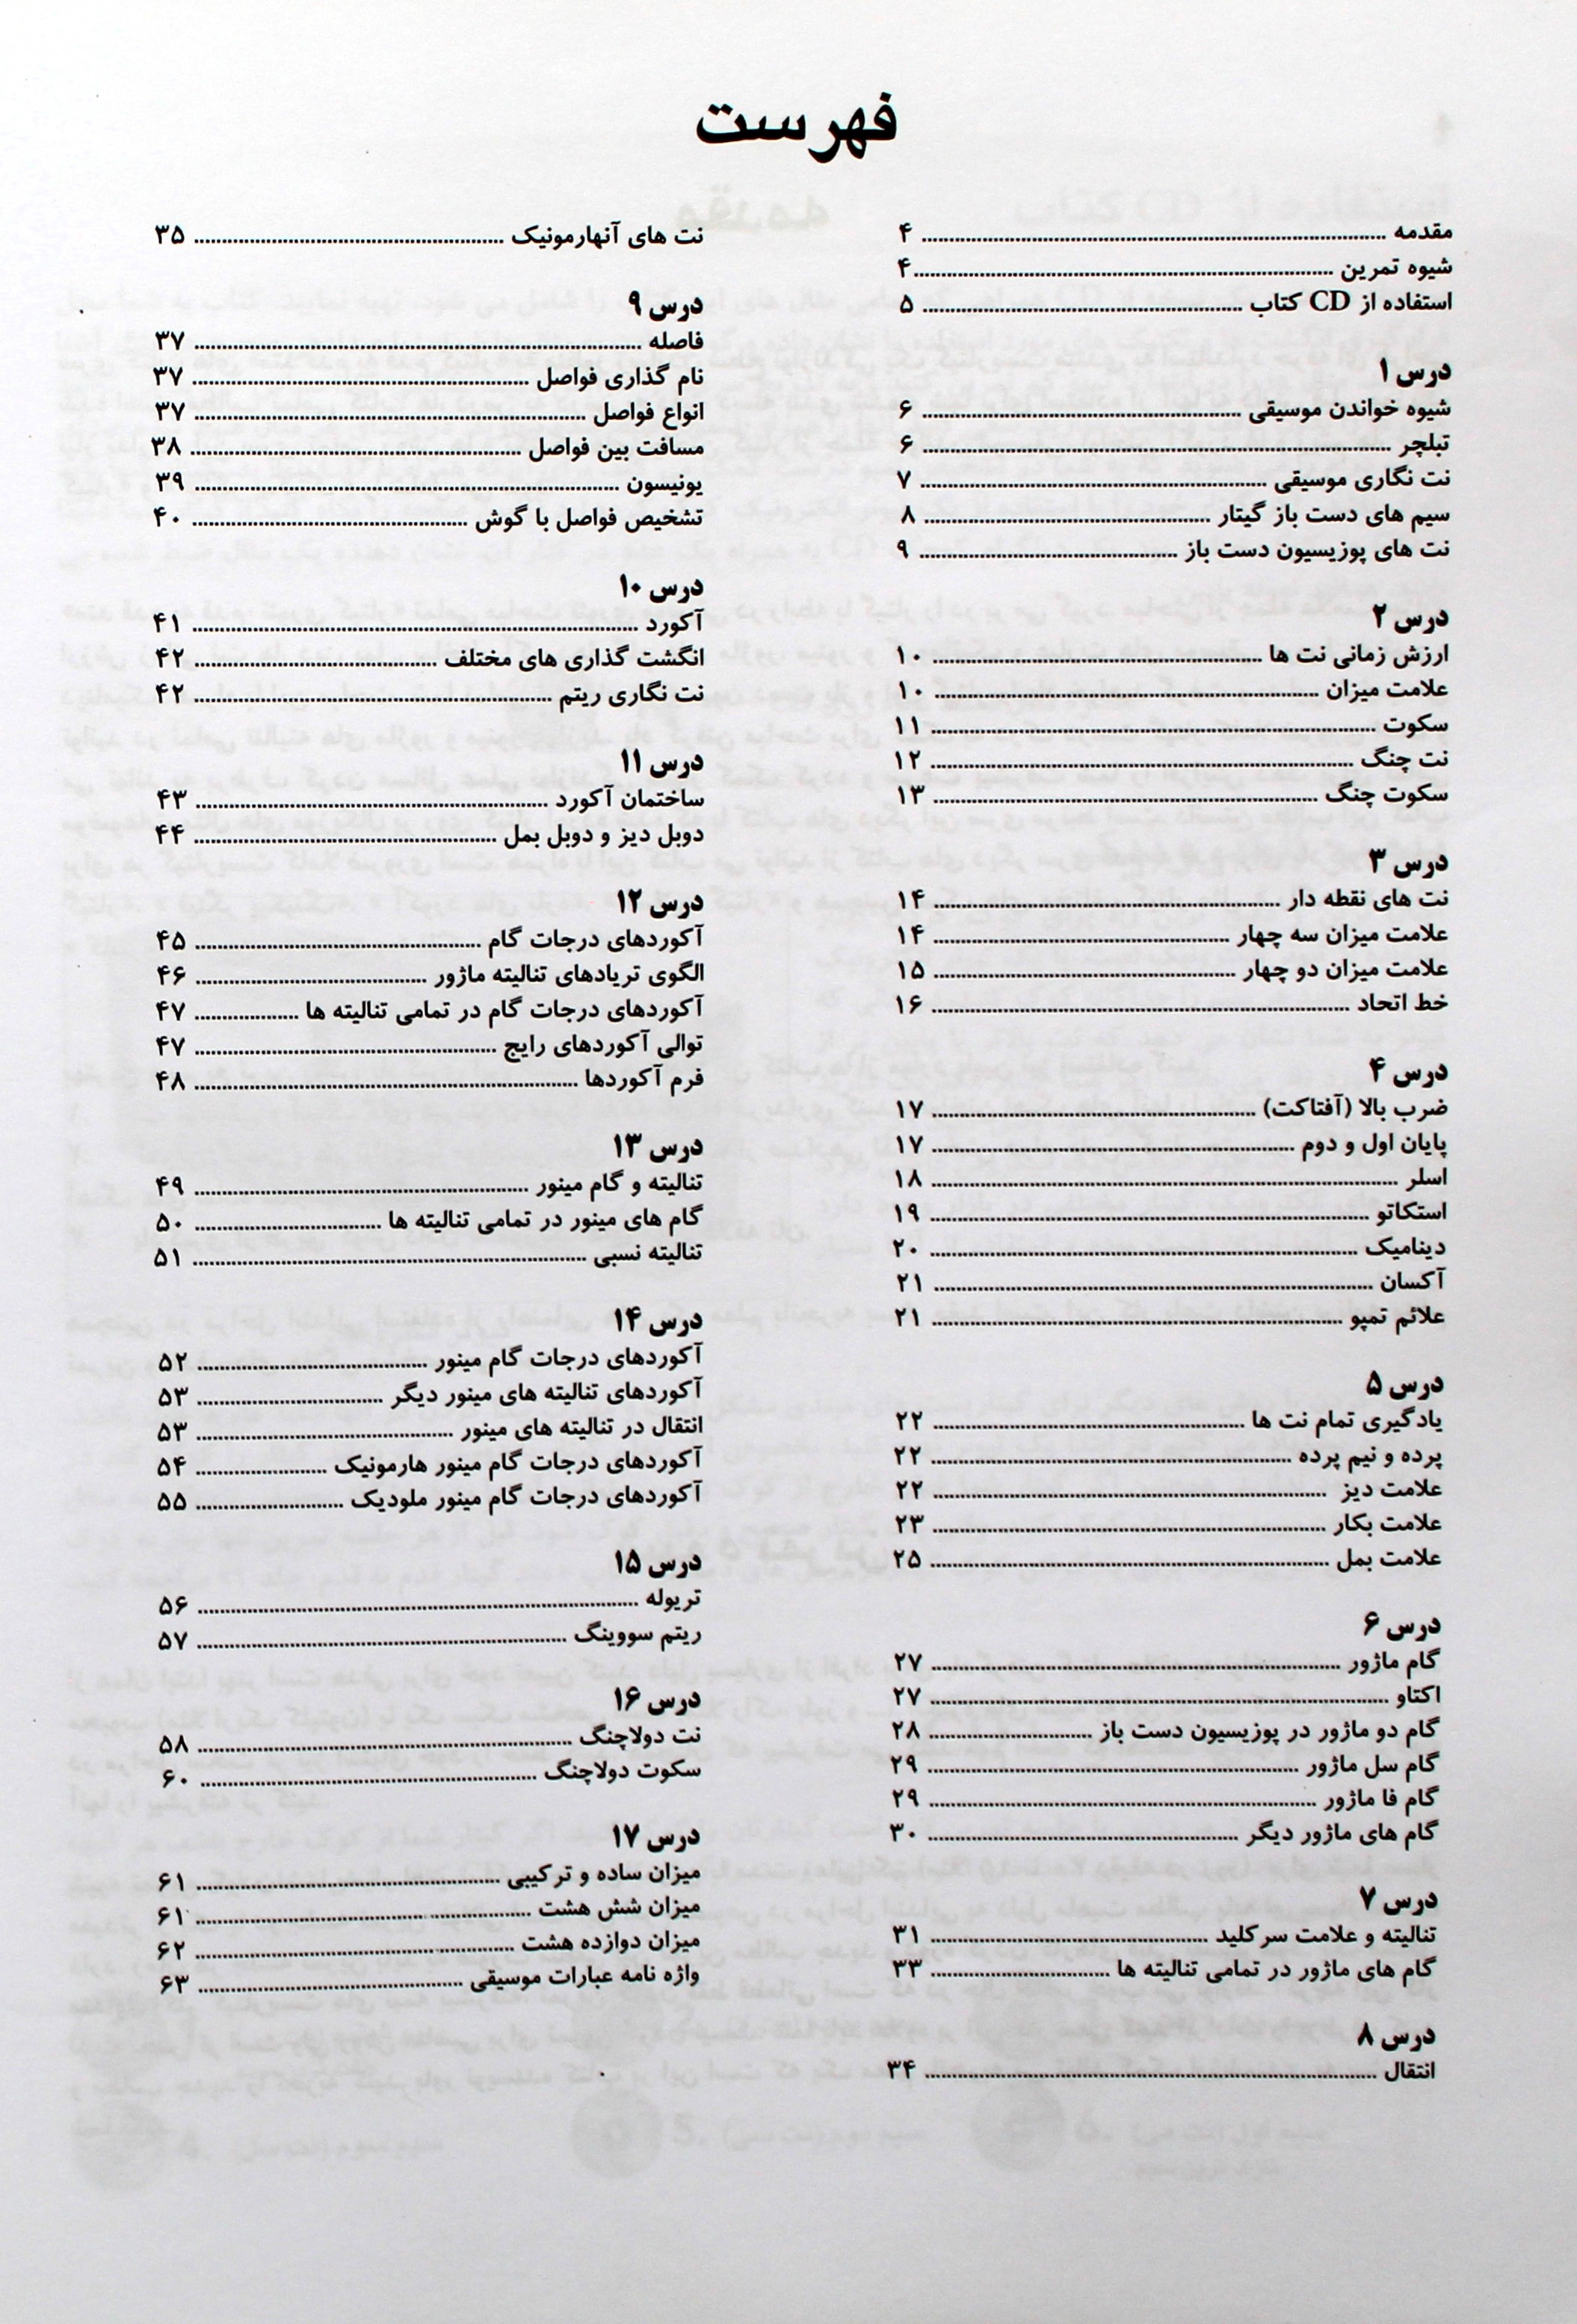 فهرست
مقدمه ........ ۴
شیوه تمرین ........ ۴
استفاده از CD کتاب ........ ۵
درس ۱
شیوه خواندن موسیقی ........ ۶
تبلچر ........ ۶
نت نگاری موسیقی ........ ۷
سیم های دست باز گیتار ........ ۸
نت های پوزیسیون دست باز ........ ۹
درس ۲
ارزش زمانی نت ها ........ ۱۰
علامت میزان ........ ۱۰
سکوت ........ ۱۱
نت چنگ ........ ۱۲
سکوت چنگ ........ ۱۳
درس ۳
نت های نقطه دار ........ ۱۴
علامت میزان سه چهار ........ ۱۴
علامت میزان دو چهار ........ ۱۵
خط اتحاد ........ ۱۶
درس ۴
ضرب بالا (آفتاکت) ........ ۱۷
پایان اول و دوم ........ ۱۷
اسلر ........ ۱۸
استکاتو ........ ۱۹
دینامیک ........ ۲۰
آکسان ........ ۲۱
علائم تمپو ........ ۲۱
درس ۵
یادگیری تمام نت ها ........ ۲۲
پرده و نیم پرده ........ ۲۲
علامت دیز ........ ۲۲
علامت بکار ........ ۲۳
علامت بمل ........ ۲۵
درس ۶
گام ماژور ........ ۲۷
اکتاو ........ ۲۷
گام دو ماژور در پوزیسیون دست باز ........ ۲۸
گام سل ماژور ........ ۲۹
گام فا ماژور ........ ۲۹
گام های ماژور دیگر ........ ۳۰
درس ۷
تنالیته و علامت سرکلید ........ ۳۱
گام های ماژور در تمامی تنالیته ها ........ ۳۳
درس ۸
انتقال ........ ۳۴
نت های آنهارمونیک ........ ۳۵
درس ۹
فاصله ........ ۳۷
نام گذاری فواصل ........ ۳۷
انواع فواصل ........ ۳۷
مسافت بین فواصل ........ ۳۸
یونیسون ........ ۳۹
تشخیص فواصل با گوش ........ ۴۰
درس ۱۰
آکورد ........ ۴۱
انگشت گذاری های مختلف ........ ۴۲
نت نگاری ریتم ........ ۴۲
درس ۱۱
ساختمان آکورد ........ ۴۳
دوبل دیز و دوبل بمل ........ ۴۴
درس ۱۲
آکوردهای درجات گام ........ ۴۵
الگوی تریادهای تنالیته ماژور ........ ۴۶
آکوردهای درجات گام در تمامی تنالیته ها ........ ۴۷
توالی آکوردهای رایج ........ ۴۷
فرم آکوردها ........ ۴۸
درس ۱۳
تنالیته و گام مینور ........ ۴۹
گام های مینور در تمامی تنالیته ها ........ ۵۰
تنالیته نسبی ........ ۵۱
درس ۱۴
آکوردهای درجات گام مینور ........ ۵۲
آکوردهای تنالیته های مینور دیگر ........ ۵۳
انتقال در تنالیته های مینور ........ ۵۳
آکوردهای درجات گام مینور هارمونیک ........ ۵۴
آکوردهای درجات گام مینور ملودیک ........ ۵۵
درس ۱۵
تریوله ........ ۵۶
ریتم سووینگ ........ ۵۷
درس ۱۶
نت دولاچنگ ........ ۵۸
سکوت دولاچنگ ........ ۶۰
درس ۱۷
میزان ساده و ترکیبی ........ ۶۱
میزان شش هشت ........ ۶۱
میزان دوازده هشت ........ ۶۲
واژه نامه عبارات موسیقی ........ ۶۳